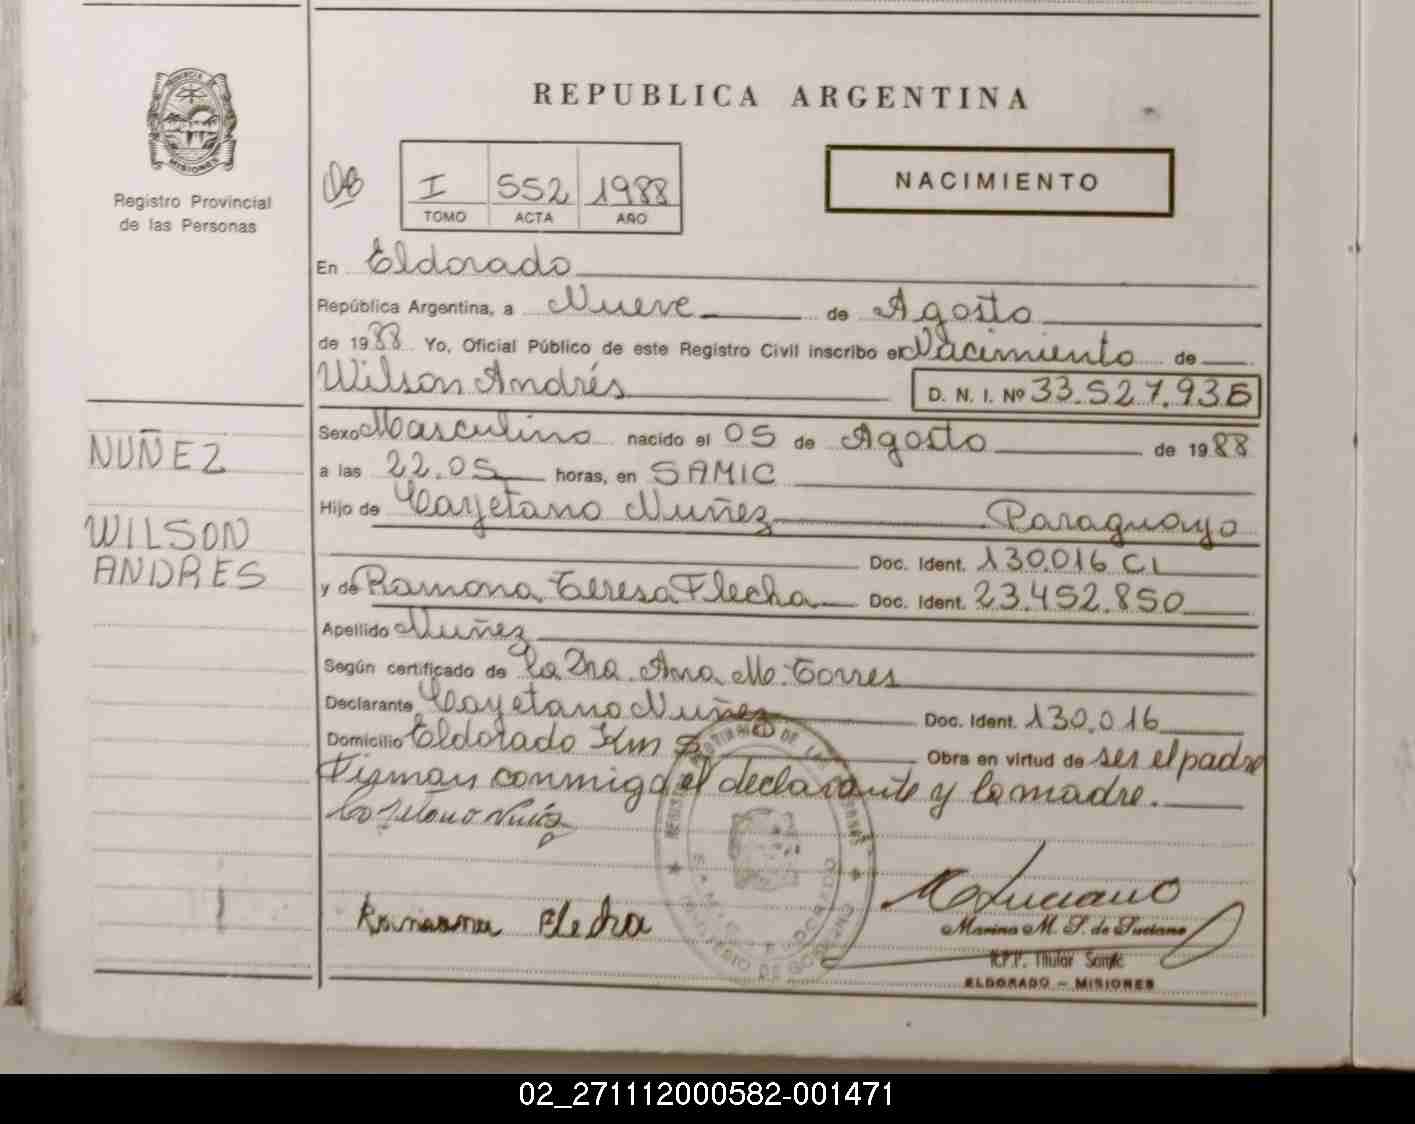 REPUBLICA ARGENTINA
PROVINCIA DE
MISIONES
Registro Provincial
de las Personas
I 552 1988
TOMO ACTA AÑO
NACIMIENTO
En Eldorado
República Argentina, a Nueve de Agosto
de 1988 Yo, Oficial Público de este Registro Civil inscribo el Nacimiento de
Wilson Andrés D. N. I. Nº 33.527.936
NUÑEZ
WILSON
ANDRES
Sexo Masculino nacido el 05 de Agosto de 1988
a las 22.05 horas, en SAMIC
Hijo de Cayetano Nuñez Paraguayo
Doc. Ident. 130.016 CI
y de Ramona Teresa Flecha Doc. Ident. 23.452.850
Apellido Nuñez
Según certificado de la Dra. Ana M. Torres
Declarante Cayetano Nuñez Doc. Ident. 130.016
Domicilio Eldorado Km Obra en virtud de ser el padre
Firman conmigo el declarante y la madre.
Cayetano Nuñez
Ramona Flecha
M Luciano
Marina M. S. de Luciano
R.P.P. Titular Samic
ELDORADO - MISIONES
02_271112000582-001471